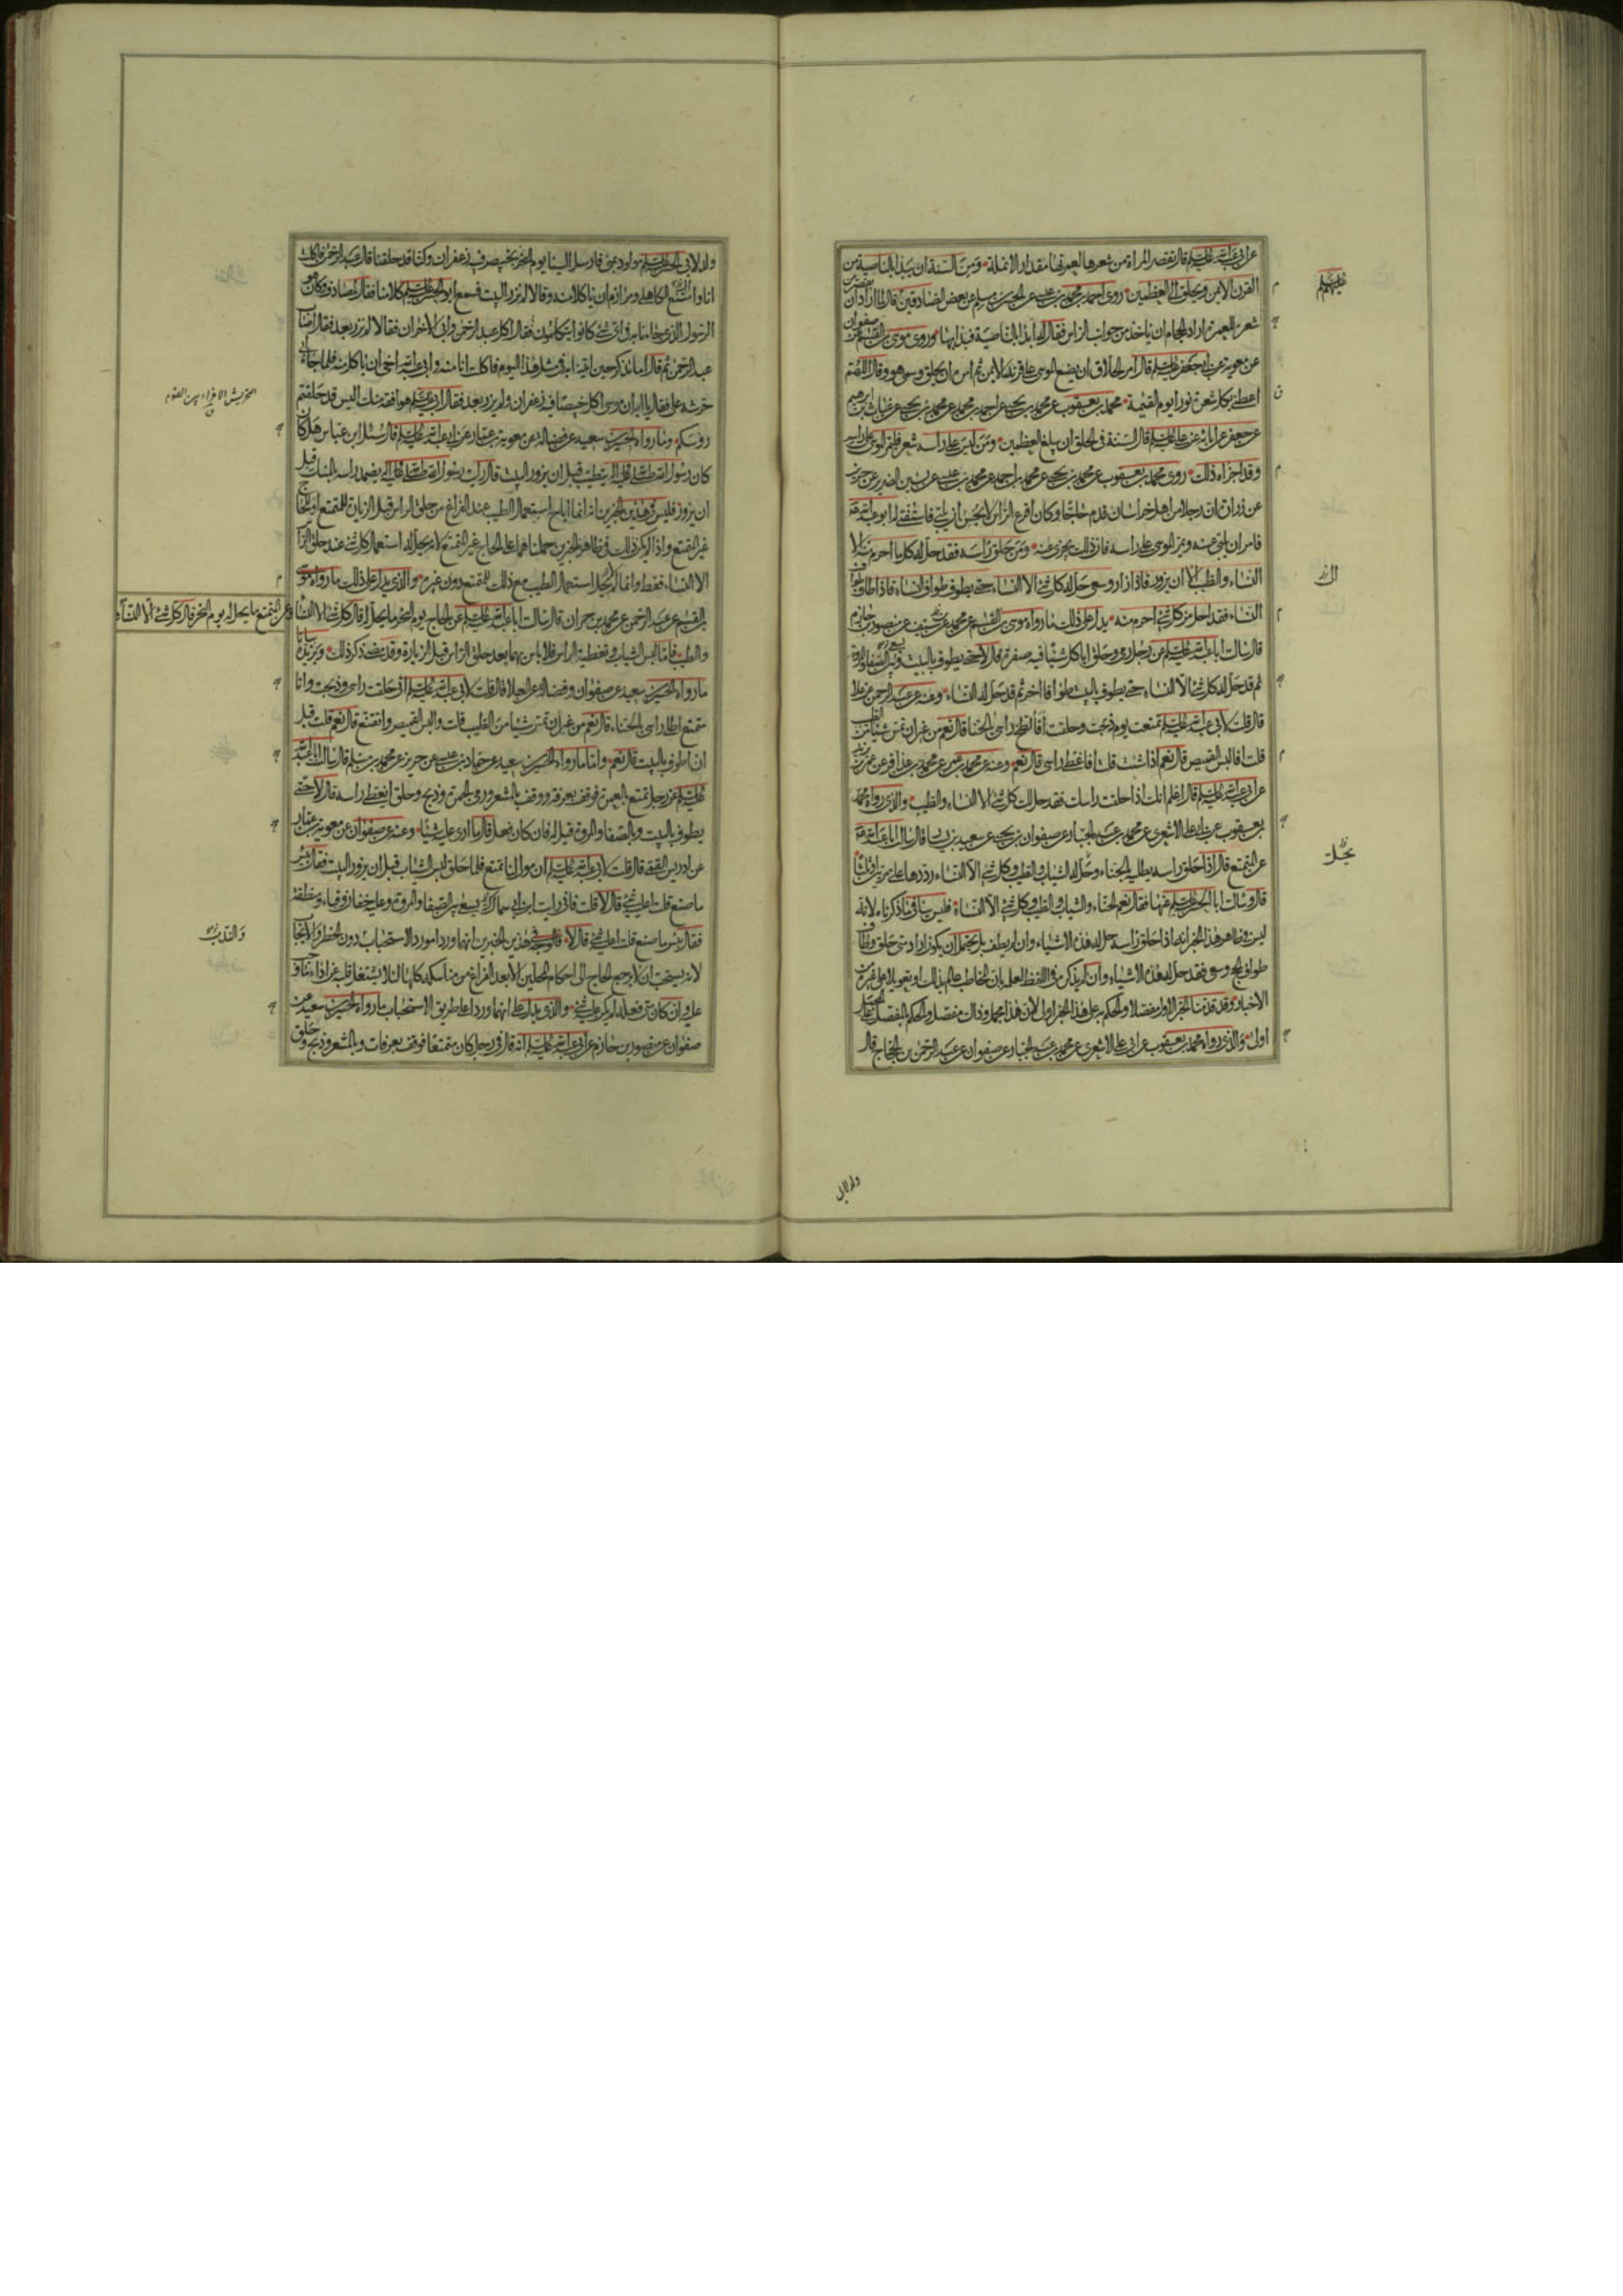 عن ابي عبد الله عليه السلام قال تقصر المراة من شعرها لعمرتها مقدار الانملة ومن السنة ان يبدا بالناصية من
القرن الايمن ويحلق الى العظمين روى احمد بن محمد بن عيسى عن الحسن بن مسلم عن بعض الصادقين قال لما اراد ان يقصر من
شعره للعمرة اراد الحجام ان ياخذ من جوانب الراس فقال له ابدا بالناصية فبدا بها وروى موسى بن القسم عن صفوان
عن معوية عن ابي جعفر عليه السلام قال امر الحلاق ان يضع الموسى على قرنه الايمن ثم امره ان يحلق وسمى هو وقال اللهم
اعطني بكل شعرة نورا يوم القيمة محمد بن يعقوب عن محمد بن يحيى عن احمد بن محمد عن محمد بن يحيى عن غياث بن ابرهيم
عن جعفر عن ابائه عن علي عليهم السلام قال السنة في الحلق ان يبلغ العظمين ومن ليس على راسه شعر فليمر الموسى على راسه
وقد اجزاه ذلك روى محمد بن يعقوب عن محمد بن يحيى عن محمد بن احمد عن محمد بن عيسى عن ياسين الضرير عن حريز
عن زرارة ان رجلا من اهل خراسان قدم حاجا وكان اقرع الراس لا يحسن ان يلبي فاستفتي له ابو عبد الله
فامر ان يلبى عنه ويمر الموسى على راسه فان ذلك يجزي عنه ومن حلق راسه فقد حل له كل ما احرم منه الا
النساء والطيب الا ان يزور فاذا زار وسعى حل له كل شئ الا النساء حتى يطوف طواف النساء فاذا طاف طواف
النساء فقد احل من كل شئ احرم منه يدل على ذلك ما رواه موسى بن القسم عن محمد عن سيف عن منصور بن حازم
قال سالت ابا عبد الله عليه السلام عن رجل رمى وحلق اياكل شيئا فيه صفرة قال لا حتى يطوف بالبيت وبين الصفا والمروة
ثم قد حل له كل شئ الا النساء حتى يطوف بالبيت طوافا اخر ثم قد حل له النساء وعنه عن عبد الرحمن عن علا
قال قلت لابي عبد الله عليه السلام تمتعت يوم ذبحت وحلقت افالطخ راسي بالحناء قال نعم من غير ان تمس شيئا من الطيب
قلت افالبس القميص قال نعم اذا شئت قلت افاغطي راسي قال نعم وعنه عن محمد بن عمر عن محمد بن عذافر عن عمر بن يزيد
عن ابي عبد الله عليه السلام قال اعلم انك اذا حلقت راسك فقد حل لك كل شئ الا النساء والطيب والذي رواه محمد
بن يعقوب عن ابي علي الاشعري عن محمد بن عبد الجبار عن صفوان بن يحيى عن سعيد بن يسار قال سالت ابا عبد الله
عن المتمتع قال اذا حلق راسه يطليه بالحناء وحل له الثياب والطيب وكل شئ الا النساء رددها علي مرتين او ثلثا
قال وسالت ابا الحسن عليه السلام عنها فقال نعم الحناء والثياب والطيب وكل شئ الا النساء فليس ينافي ما ذكرناه لانه
ليس في ظاهر هذا الخبر انه اذا حلق راسه حل له هذه الاشياء وان لم يطف بل يحتمل ان يكون اراد متى حلق وطاف
طواف الحج وسعى فقد حل له هذه الاشياء وان لم يذكر في اللفظ لعلمه بان المخاطب عالم بذلك او تعويلا على غيره من
الاخبار وقد قدمنا الخبر الاول مفصلا والحكم به على هذا الخبر اولى لان هذا مجمل وذاك مفصل والحكم بالمفصل على المجمل
اولى والذي رواه محمد بن يعقوب عن ابي علي الاشعري عن محمد بن عبد الجبار عن صفوان عن عبد الرحمن بن الحجاج قال
عليهم السلام
يحل
ولد لابي
ولد لابي الحسن عليه السلام مولود بمنى فارسل الينا يوم النحر بخبيص فيه زعفران وكنا قد حلقنا قال عبد الرحمن فاكلت
انا وامتنع الكاهلي ومرازم ان ياكلا منه وقالا لم نزر البيت فسمع ابو الحسن عليه السلام كلامنا فقال لمصادف وكان هو
الرسول الذي جاءنا به في اي شئ كانوا يتكلمون فقال اكل عبد الرحمن وابى الاخران فقالا لم نزر بعد فقال اصاب
عبد الرحمن ثم قال اما تذكر حين اتينا به في مثل هذا اليوم فاكلت انا منه وابى عبد الله اخي ان ياكل منه فلما جاء ابي
حرشه علي فقال يا ابه ان موسى اكل خبيصا فيه زعفران ولم يزر بعد فقال ابي عليه السلام هو افقه منك اليس قد حلقتم
رؤسكم وما رواه الحسين بن سعيد عن فضالة عن معوية بن عمار عن ابي عبد الله عليه السلام قال سئل ابن عباس هل كان
كان رسول الله صلى الله عليه واله يتطيب قبل ان يزور البيت قال رايت رسول الله صلى الله عليه واله يضمد راسه بالمسك قبل
ان يزور فليس في هذين الخبرين انه انما اباح استعمال الطيب عند الفراغ من حلق الراس قبل الزيارة للمتمتع او للحاج
غير المتمتع واذا لم يكن ذلك في ظاهر الخبرين حملناهما على الحاج غير المتمتع لانه يحل له استعمال كل شئ عند حلق الراس
الا النساء فقط وانما لا يحل استعمال الطيب مع ذلك للمتمتع دون غيره والذي يدل على ذلك ما رواه موسى
بن القسم عن عبد الرحمن عن محمد بن حمران قال سالت ابا عبد الله عليه السلام عن الحاج يوم النحر ما يحل له قال كل شئ الا النساء وعن المتمتع ما يحل له يوم النحر قال كل شئ الا النساء
والطيب فاما لبس الثياب وتغطية الراس فلا باس بهما بعد حلق الراس قبل الزيارة وقد مضى ذكر ذلك ويزيده بيانا
ما رواه الحسين بن سعيد عن صفوان وفضالة عن العلا قال قلت لابي عبد الله عليه السلام اني حلقت راسي وذبحت وانا
متمتع اطلي راسي بالحناء قال نعم من غير ان تمس شيئا من الطيب قلت والبس القميص واتقنع قال نعم قلت قبل
ان اطوف بالبيت قال نعم واما ما رواه الحسين بن سعيد عن حماد بن عيسى عن حريز عن محمد بن مسلم قال سالت ابا عبد الله
عليه السلام عن رجل تمتع بالعمرة فوقف بعرفة ووقف بالمشعر ورمى الجمرة وذبح وحلق ايغطي راسه قال لا حتى
يطوف بالبيت وبالصفا والمروة قيل له فان كان فعل قال ما ارى عليه شيئا وعنه عن صفوان عن معوية بن عمار
عن ادريس القمي قال قلت لابي عبد الله عليه السلام ان مولى لنا تمتع فلما حلق لبس الثياب قبل ان يزور البيت فقال بئس
ما صنع قلت اعليه شئ قال لا قلت فاني رايت ابن ابي سماك يسعى بين الصفا والمروة وعليه خفان وقباء ومنطقة
فقال بئس ما صنع قلت اعليه شئ قال لا فالوجه في هذين الخبرين انهما وردا مورد الاستحباب دون الحظر والايجاب
لانه يستحب ان لا يرجع الحاج الى احكام المحلين الا بعد الفراغ من مناسكه كلها
علي وان كان متى فعله لم يكن عليه شئ والذي يدل على انهما وردا على طريق الاستحباب ما رواه الحسين بن سعيد عن
صفوان عن منصور بن حازم عن ابي عبد الله عليه السلام انه قال في رجل كان متمتعا فوقف بعرفات وبالمشعر وذبح وحلق
التحريش الاغراء بين القوم
والندب